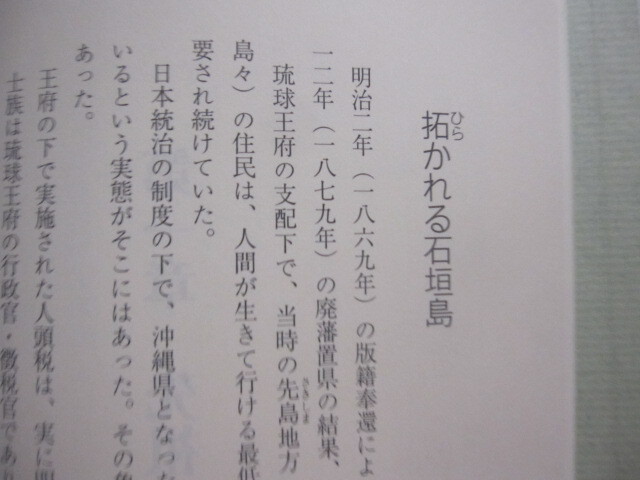 拓かれる石垣島
ひら
明治二年（一八六九年）の版籍奉還によ
一二年（一八七九年）の廃藩置県の結果、
琉球王府の支配下で、当時の先島地方
さきしま
島々）の住民は、人間が生きて行ける最低
要され続けていた。
日本統治の制度の下で、沖縄県となった
いるという実態がそこにはあった。その
あった。
王府の下で実施された人頭税は、実に
士族は琉球王府の行政官・徴税官であり